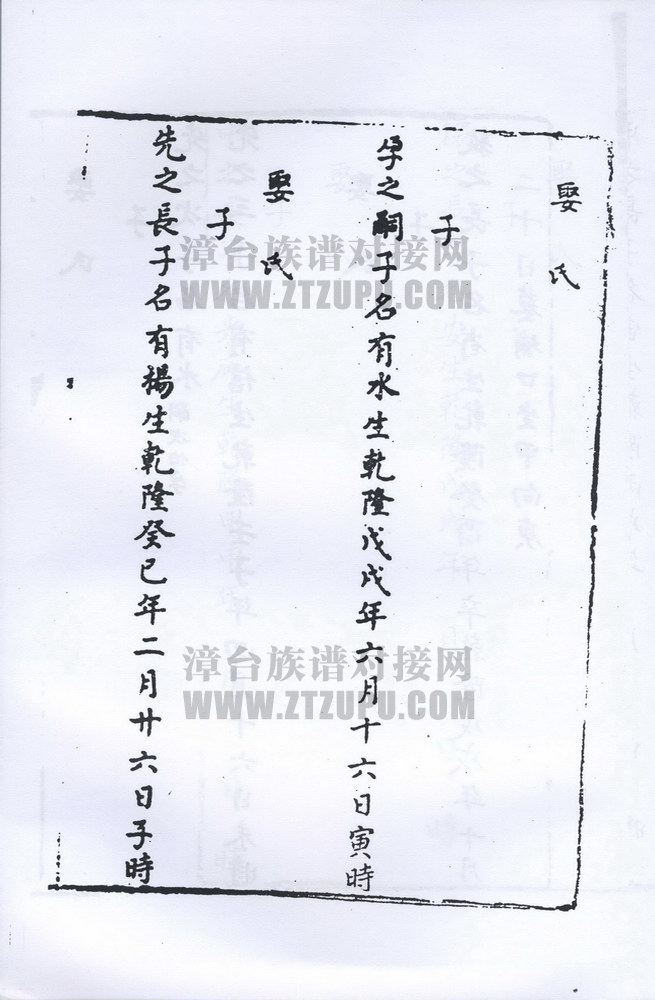 娶 氏
子
孕之嗣子名有水生乾隆戊戌年六月十六日寅時
娶 氏
子
先之長子名有楊生乾隆癸巳年二月廿六日子時
漳台族谱对接网
WWW.ZTZUPU.COM
漳台族谱对接网
WWW.ZTZUPU.COM